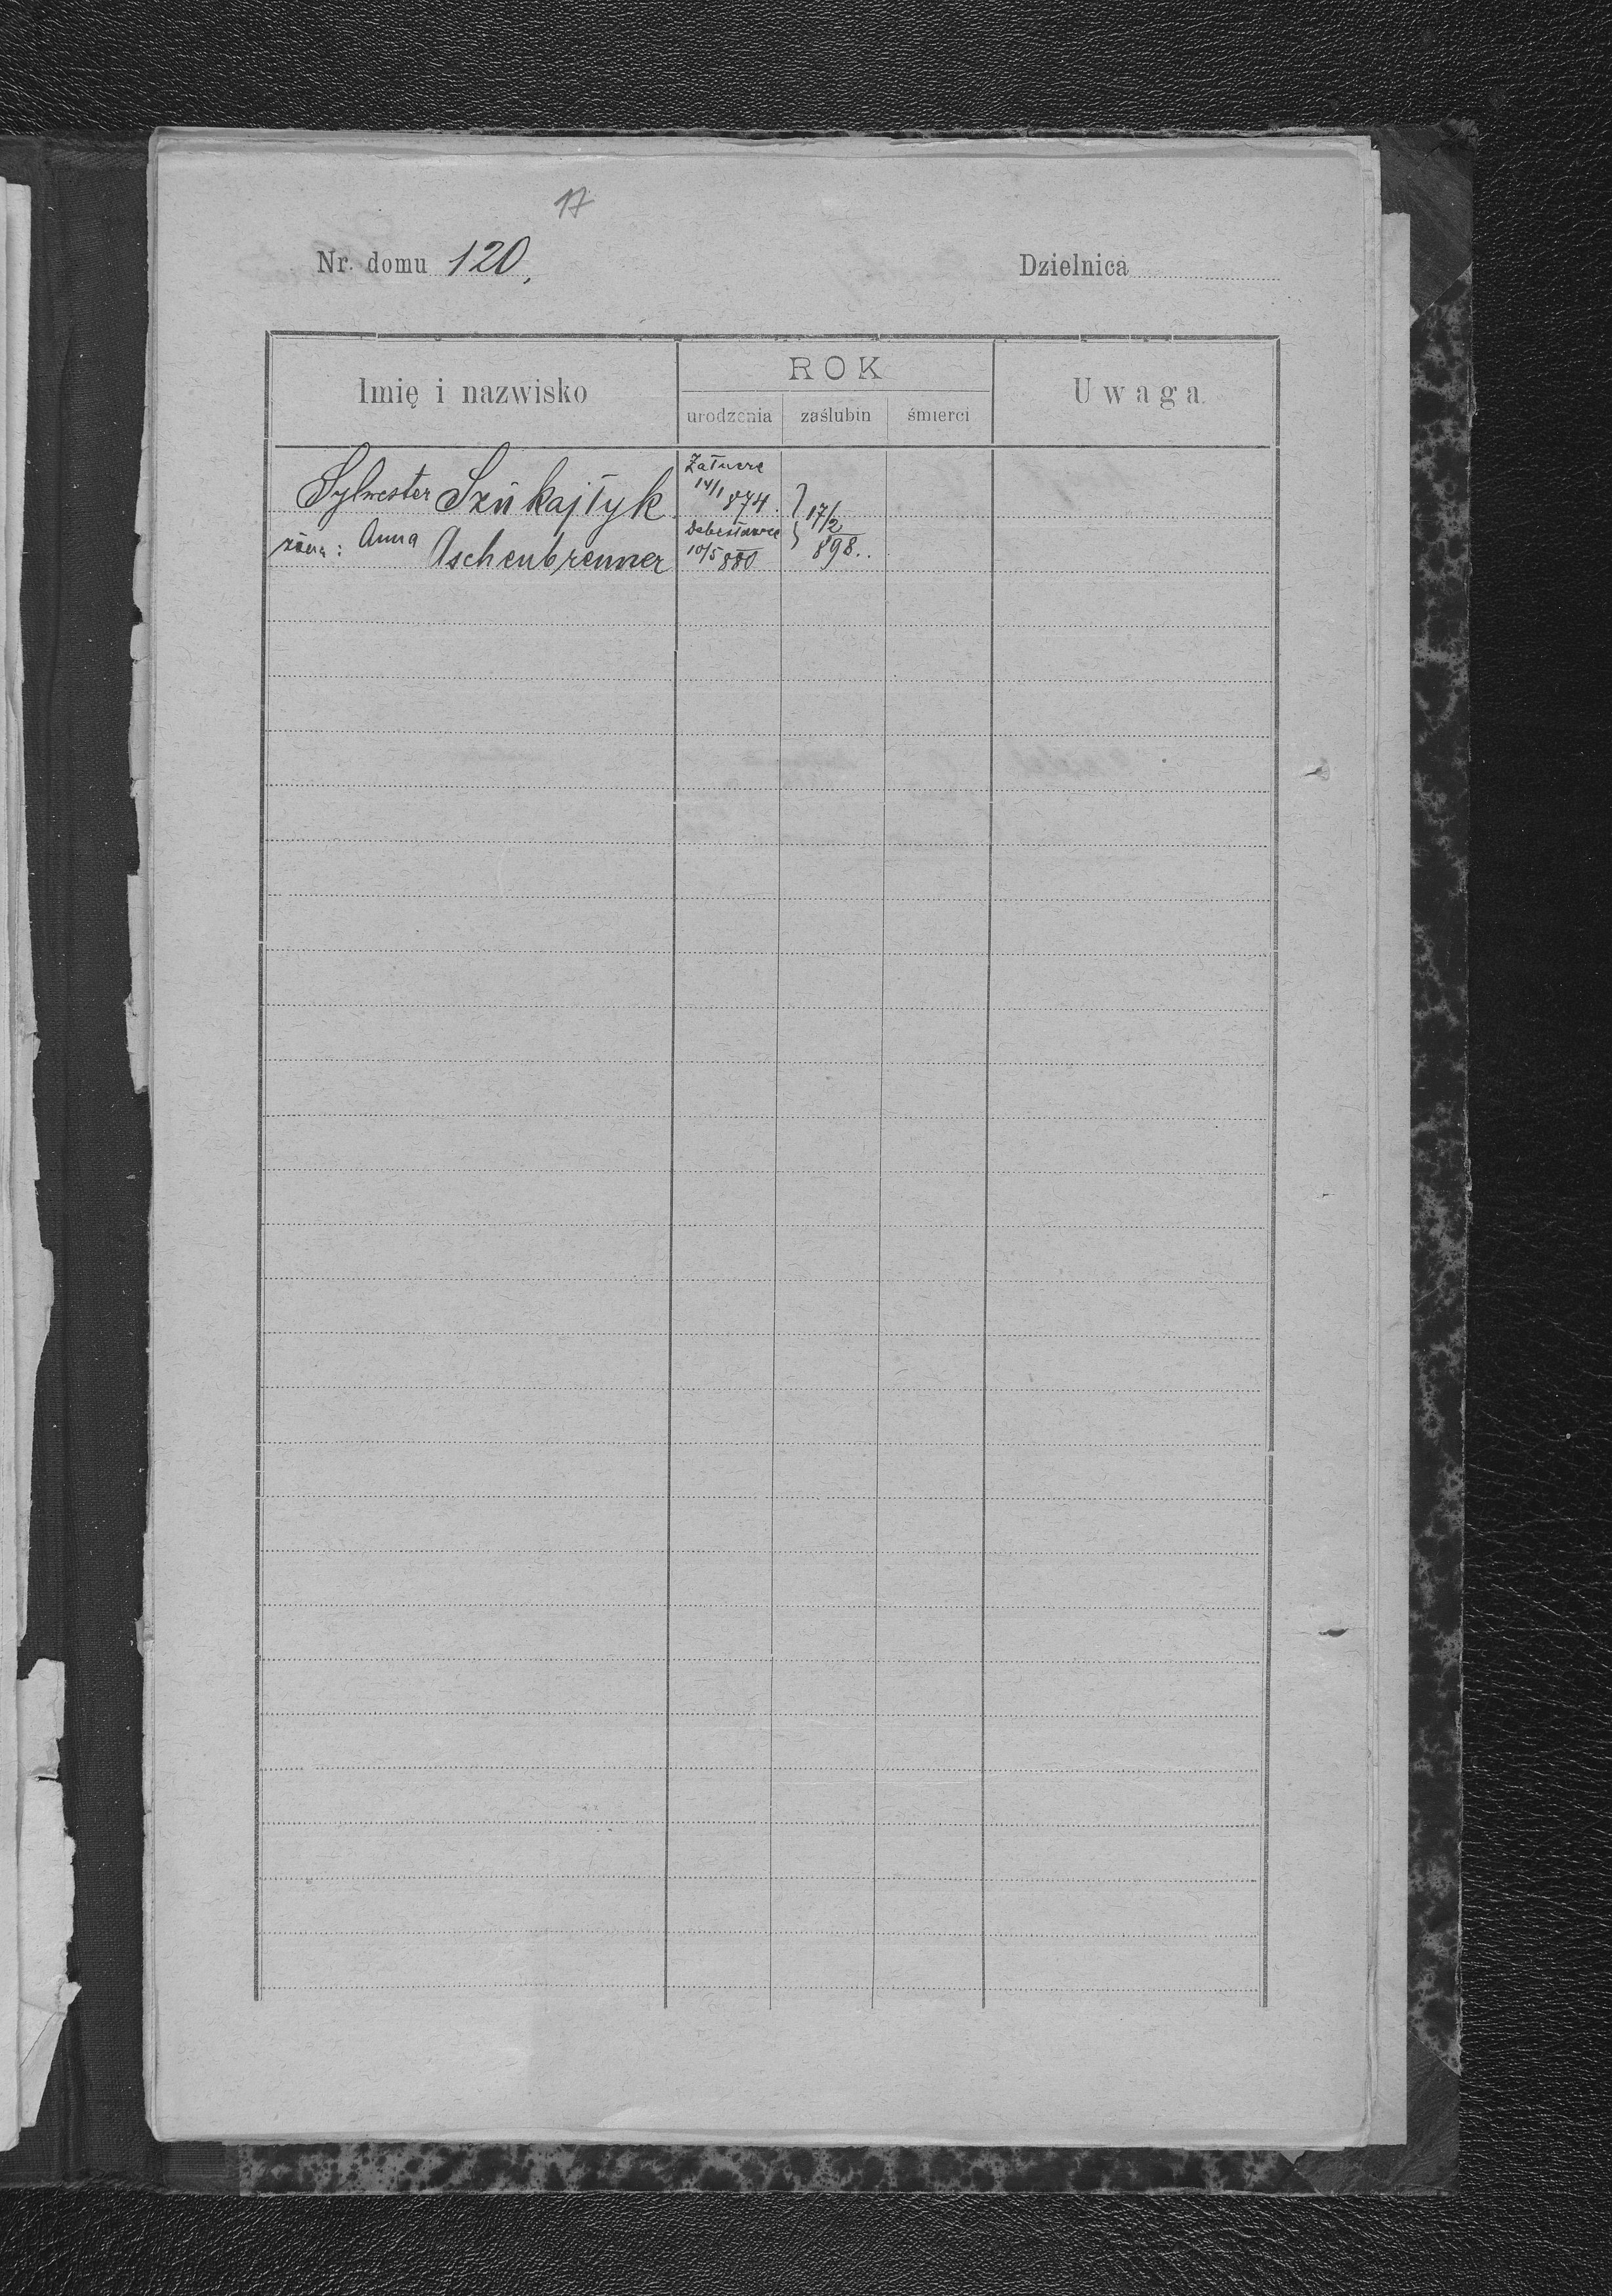 17
Nr. domu 120,
Dzielnica
Imię i nazwisko
ROK
urodzenia zaślubin śmierci
Uwaga.
Załucze
Sylwester Szükajłyk 14/1 874. } 17/2
Debesławce
żona: Anna Aschenbrenner 10/5 880 } 898..